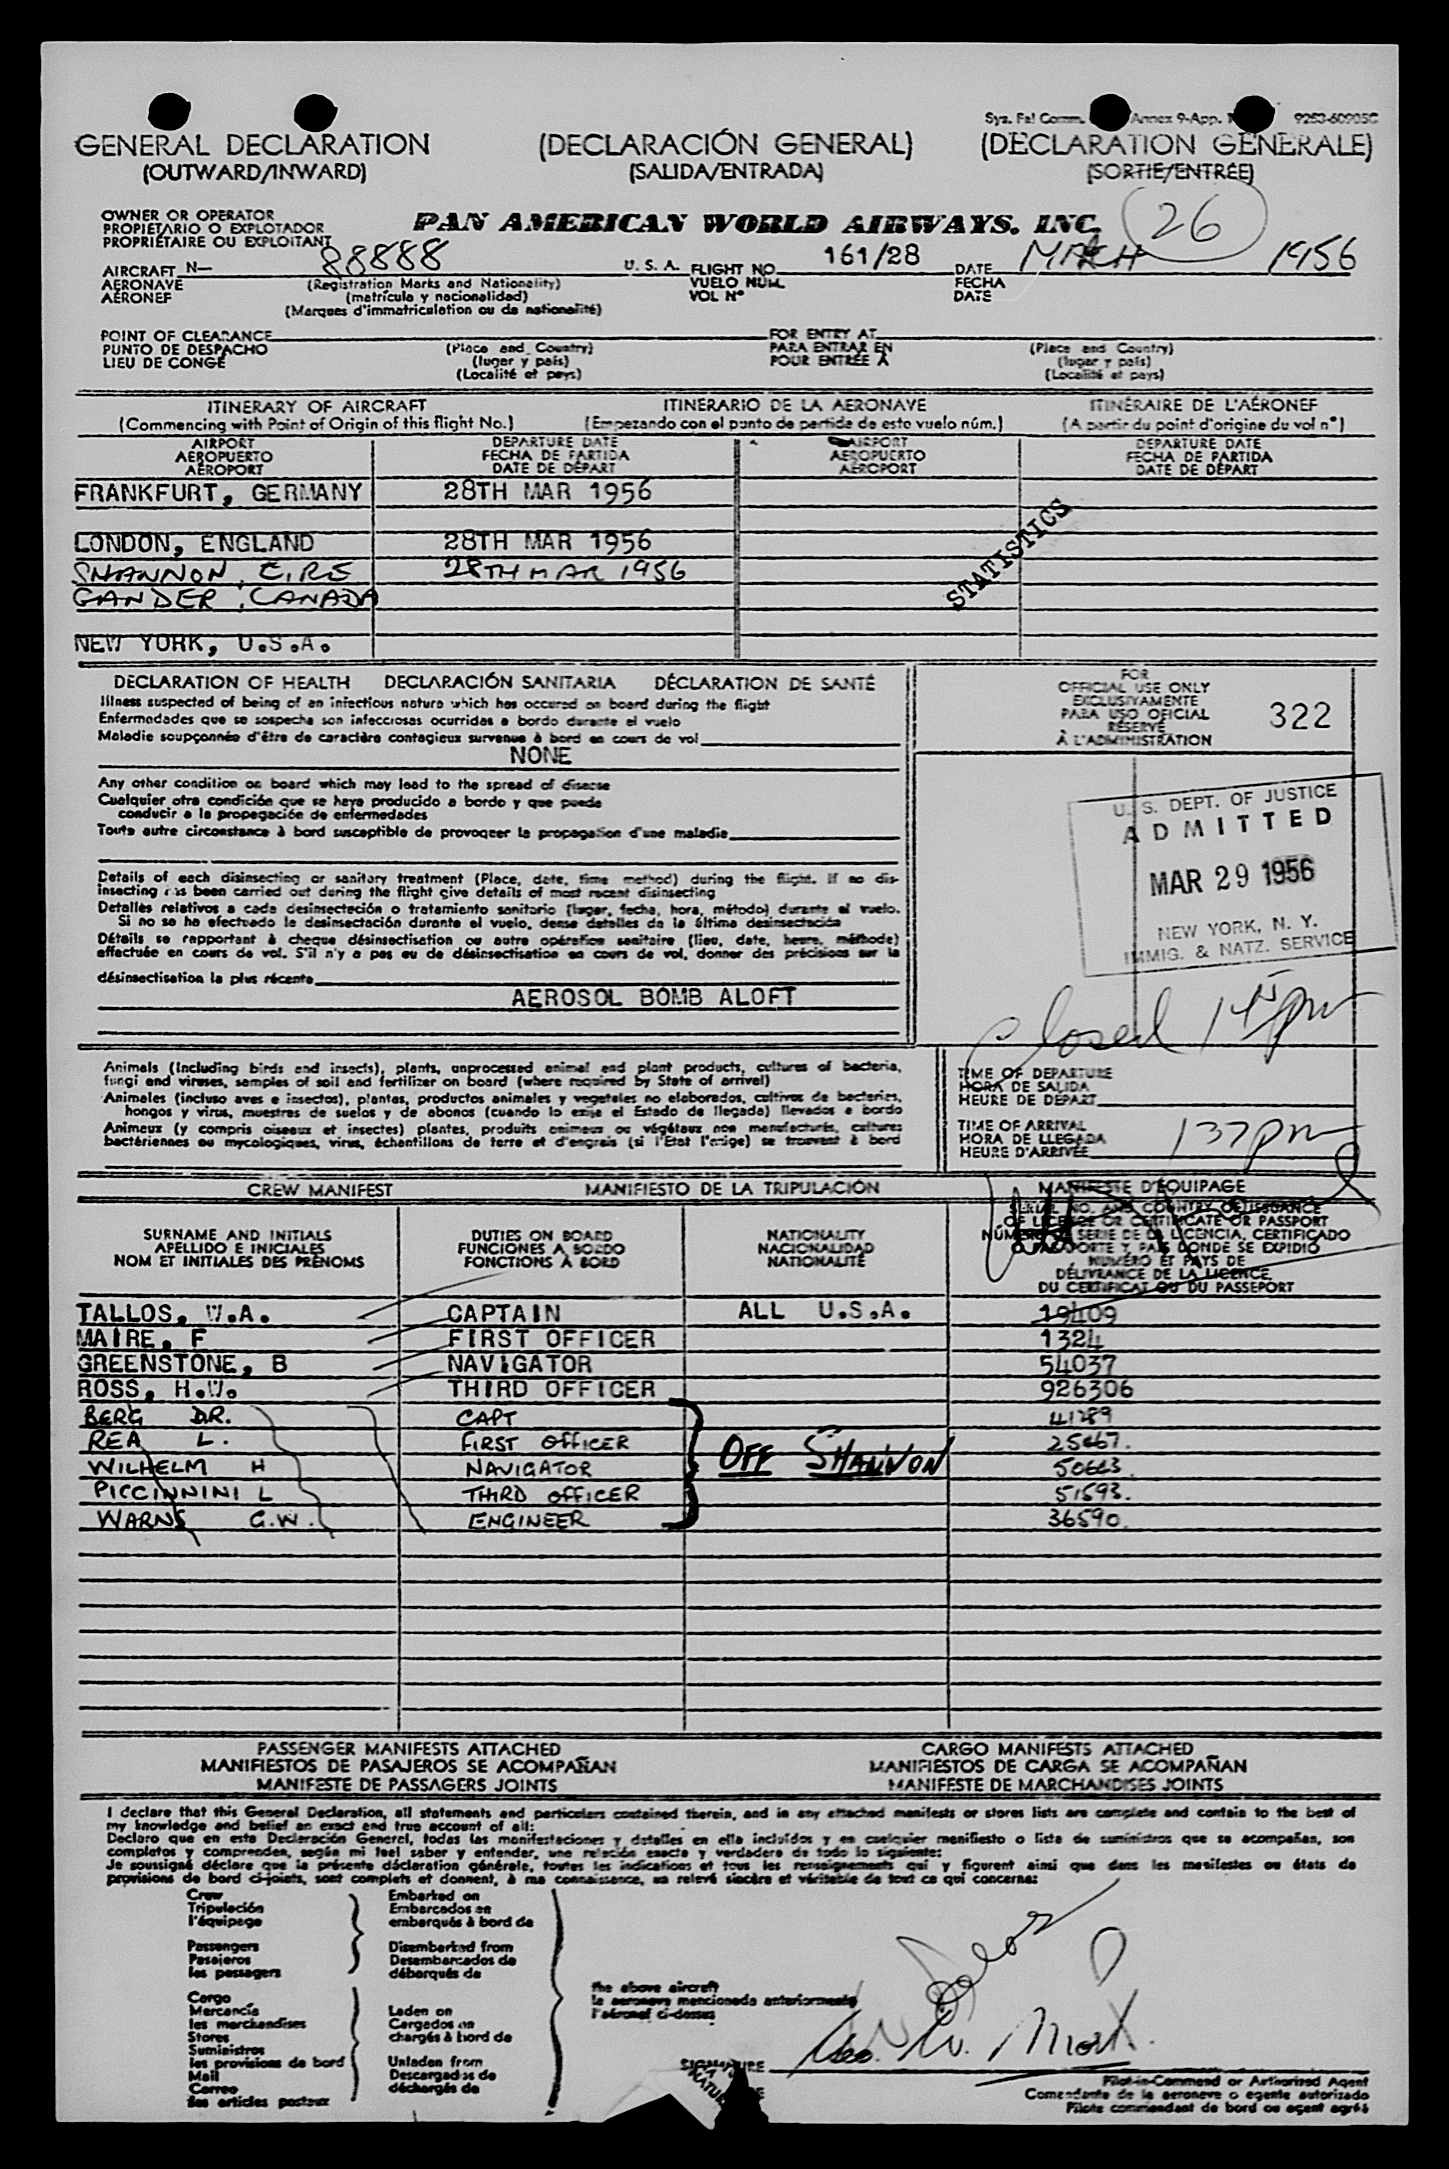 Sys. Fal Comm. Annex 9-App. 9253-60905C
GENERAL DECLARATION (DECLARACIÓN GENERAL) (DÉCLARATION GÉNÉRALE)
(OUTWARD/INWARD) (SALIDA/ENTRADA) (SORTIE/ENTRÉE)
OWNER OR OPERATOR
PROPIETARIO O EXPLOTADOR
PROPRIÉTAIRE OU EXPLOITANT
PAN AMERICAN WORLD AIRWAYS, INC.
26
AIRCRAFT N— 88888 U. S. A. FLIGHT NO. 161/28 DATE MARCH 1956
AERONAVE (Registration Marks and Nationality) VUELO NÚM. FECHA
AÉRONEF (matrícula y nacionalidad) VOL N° DATE
(Marques d'immatriculation ou de nationalité)
POINT OF CLEARANCE FOR ENTRY AT
PUNTO DE DESPACHO (Place and Country) PARA ENTRAR EN (Place and Country)
LIEU DE CONGÉ (lugar y país) POUR ENTRÉE À (lugar y país)
(Localité et pays) (Localité et pays)
ITINERARY OF AIRCRAFT ITINERARIO DE LA AERONAVE ITINÉRAIRE DE L'AÉRONEF
(Commencing with Point of Origin of this flight No.) (Empezando con el punto de partida de este vuelo núm.) (A partir du point d'origine du vol n°)
AIRPORT DEPARTURE DATE AIRPORT DEPARTURE DATE
AEROPUERTO FECHA DE PARTIDA AEROPUERTO FECHA DE PARTIDA
AÉROPORT DATE DE DÉPART AÉROPORT DATE DE DÉPART
FRANKFURT, GERMANY 28TH MAR 1956
LONDON, ENGLAND 28TH MAR 1956
SHANNON, EIRE 28TH MAR 1956
GANDER, CANADA
NEW YORK, U.S.A.
STATISTICS
DECLARATION OF HEALTH DECLARACIÓN SANITARIA DÉCLARATION DE SANTÉ
Illness suspected of being of an infectious nature which has occured on board during the flight
Enfermedades que se sospecha son infecciosas ocurridas a bordo durante el vuelo
Maladie soupçonnée d'être de caractère contagieux survenue à bord en cours de vol
NONE
Any other condition on board which may lead to the spread of disease
Cualquier otra condición que se haya producido a bordo y que puede
conducir a la propagación de enfermedades
Toute autre circonstance à bord susceptible de provoquer la propagation d'une maladie
Details of each disinsecting or sanitary treatment (Place, date, time method) during the flight. If no dis-
insecting has been carried out during the flight give details of most recent disinsecting
Detalles relativos a cada desinsectación o tratamiento sanitario (lugar, fecha, hora, método) durante el vuelo.
Si no se ha efectuado la desinsectación durante el vuelo, dense detalles de la última desinsectación
Détails se rapportant à cheque désinsectisation ou autre opération sanitaire (lieu, date, heure, méthode)
effectuée en cours de vol. S'il n'y a pas eu de désinsectisation en cours de vol, donner des précisions sur la
désinsectisation la plus récente
AEROSOL BOMB ALOFT
FOR
OFFICIAL USE ONLY
EXCLUSIVAMENTE
PARA USO OFICIAL
RÉSERVÉ
À L'ADMINISTRATION
322
U. S. DEPT. OF JUSTICE
ADMITTED
MAR 29 1956
NEW YORK, N. Y.
IMMIG. & NATZ. SERVICE
Closed 145pm
Animals (Including birds and insects), plants, unprocessed animal and plant products, cultures of bacteria,
fungi and viruses, samples of soil and fertilizer on board (where required by State of arrival)
Animales (incluso aves e insectos), plantas, productos animales y vegetales no elaborados, cultivos de bacterias,
hongos y virus, muestras de suelos y de abonos (cuando lo exija el Estado de llegada) llevados a bordo
Animaux (y compris oiseaux et insectes) plantes, produits animaux ou végétaux non manufacturés, cultures
bactériennes ou mycologiques, virus, échantillons de terre et d'engrais (si l'Etat l'exige) se trouvant à bord
TIME OF DEPARTURE
HORA DE SALIDA
HEURE DE DÉPART
TIME OF ARRIVAL
HORA DE LLEGADA 137pm
HEURE D'ARRIVÉE
CREW MANIFEST MANIFIESTO DE LA TRIPULACIÓN MANIFESTE D'ÉQUIPAGE
SURNAME AND INITIALS
APELLIDO E INICIALES
NOM ET INITIALES DES PRÉNOMS
DUTIES ON BOARD
FUNCIONES A BORDO
FONCTIONS À BORD
NATIONALITY
NACIONALIDAD
NATIONALITÉ
SERIAL NO. AND COUNTRY OF ISSUANCE
OF LICENSE OR CERTIFICATE OR PASSPORT
NÚMERO DE SERIE DE LA LICENCIA, CERTIFICADO
O PASAPORTE Y PAÍS DONDE SE EXPIDIÓ
NUMÉRO ET PAYS DE
DÉLIVRANCE DE LA LICENCE,
DU CERTIFICAT OU DU PASSEPORT
TALLOS, W.A. CAPTAIN ALL U.S.A. 19409
MAIRE, F FIRST OFFICER 1324
GREENSTONE, B NAVIGATOR 54037
ROSS, H.W. THIRD OFFICER 926306
BERG D.R. CAPT 41289
REA L. FIRST OFFICER 25467.
WILHELM H NAVIGATOR 50643
PICCINNINI L THIRD OFFICER 51593.
WARNS G.W. ENGINEER 36590.
OFF SHANNON
PASSENGER MANIFESTS ATTACHED CARGO MANIFESTS ATTACHED
MANIFIESTOS DE PASAJEROS SE ACOMPAÑAN MANIFIESTOS DE CARGA SE ACOMPAÑAN
MANIFESTE DE PASSAGERS JOINTS MANIFESTE DE MARCHANDISES JOINTS
I declare that this General Declaration, all statements and particulars contained therein, and in any attached manifests or stores lists are complete and contain to the best of
my knowledge and belief an exact and true account of all:
Declaro que en esta Declaración General, todas las manifestaciones y detalles en ella incluídos y en cualquier manifiesto o lista de suministros que se acompañan, son
completos y comprenden, según mi leal saber y entender, una relación exacta y verdadera de todo lo siguiente:
Je soussigné déclare que la présente déclaration générale, toutes les indications et tous les renseignements qui y figurent ainsi que dans les manifestes ou états de
provisions de bord ci-joints, sont complets et donnent, à ma connaissance, un relevé sincère et véritable de tout ce qui concerne:
Crew Embarked on
Tripulación Embarcados en
l'équipage embarqués à bord de
Passengers Disembarked from
Pasajeros Desembarcados de
les passagers débarqués de
the above aircraft
la aeronave mencionada anteriormente
l'aéronef ci-dessus
Cargo
Mercancía Laden on
les marchandises Cargados en
Stores chargés à bord de
Suministros
les provisions de bord Unladen from
Mail Descargados de
Correo déchargés de
les articles postaux
SIGNATURE
Pilot-in-Command or Authorized Agent
Comandante de la aeroneve o agente autorizado
Pilote commandant de bord ou agent agréé